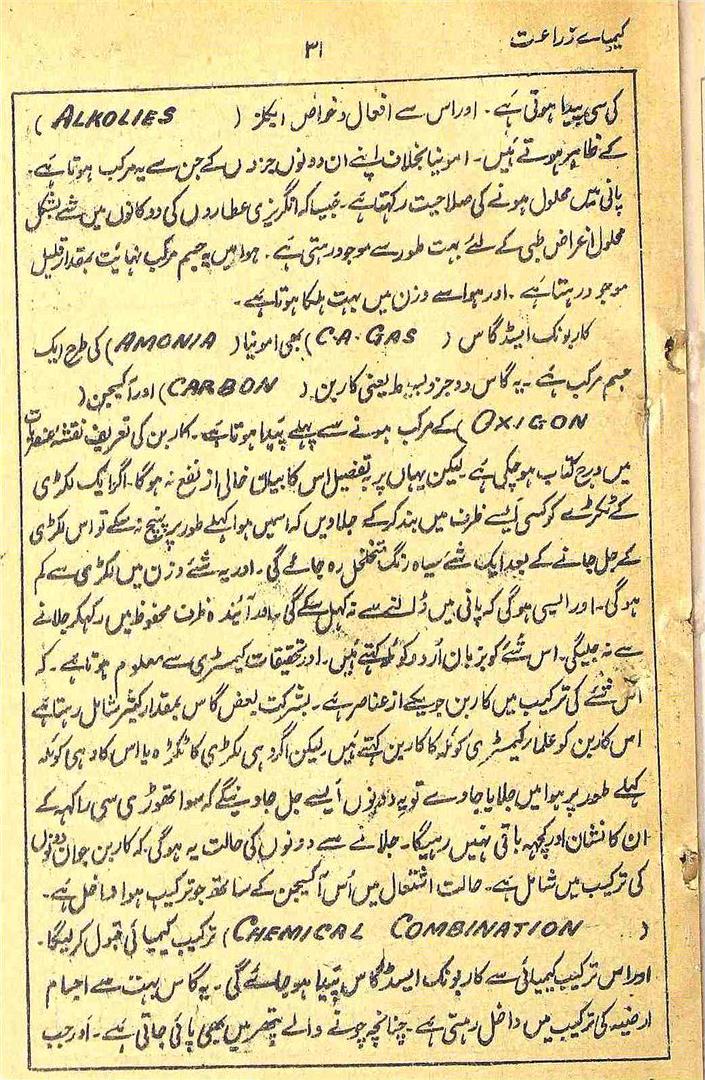 کیمیاے زراعت
۳۱
کی سی پیدا ہوتی ہے۔ اور اس سے افعال و خواص ایکلز (ALKOLIES)
کے ظاہر ہوتے ہیں۔ امونیا بخلاف اپنے ان دونوں جزوں کے جن سے یہ مرکب ہوتا ہے۔
پانی میں محلول ہونے کی صلاحیت رکہتا ہے۔ جیسا کہ انگریزی عطاروں کی دوکانوں میں شے بشکل
محلول اغراض طبی کے لئے بہت طور سے موجود رہتی ہے۔ ہوا میں یہ جسم مرکب نہایت بمقدار قلیل
موجود رہتا ہے۔ اور ہوا سے وزن میں بہت ہلکا ہوتا ہے۔
کاربونک ایسڈ گاس (C.A. GAS) بھی امونیا (AMONIA) کی طرح ایک
جسم مرکب ہے۔ یہ گاس دو جزو بسیط یعنی کاربن (CARBON) اور آکسیجن (
OXIGON) کے مرکب ہونے سے پہلے پیدا ہوتا ہے۔ کاربن کی تعریف نقشہ عنصریات
میں درج کتاب ہو چکی ہے۔ لیکن یہاں پر بتفصیل اس کا بیان خالی از نفع نہ ہوگا۔ اگر ایک لکڑی
کے ٹکڑے کو کسی ایسے ظرف میں بند کر کے جلاویں کہ اسمیں ہوا کہلے طور پر پہنچ نہ سکے تو اس لکڑی
کے جل جانے کے بعد ایک شے سیاہ رنگ متخلخل رہ جائے گی۔ اور یہ شئے وزن میں لکڑی سے کم
ہوگی۔ اور ایسی ہوگی کہ پانی میں ڈالنے سے نہ گہل سکے گی۔ اور آئندہ ظرف محفوظ میں رکہکر جلانے
سے نہ جلیگی۔ اس شئے کو بزبان اُردو کوئلہ کہتے ہیں۔ اور تحقیقات کیمسٹری سے معلوم ہوتا ہے۔ کہ
اس شئے کی ترکیب میں کاربن جو یکے از عناصر ہے۔ بشرکت بعض گاس بمقدار کثیر شامل رہتا ہے
اس کاربن کو علمار کیمسٹری کوئلہ کا کاربن کہتے ہیں۔ لیکن اگر وہی لکڑی کا ٹکڑہ یا اس کا وہی کوئلہ
کہلے طور پر ہوا میں جلایا جاوے تو یہ دونوں ایسے جل جاوینگے کہ سوا تھوڑی سی راکہہ کے
ان کا نشان اور کچہہ باقی نہیں رہیگا۔ جلانے سے دونوں کی حالت یہ ہوگی۔ کہ کاربن جو ان دونوں
کی ترکیب میں شامل ہے۔ حالت اشتعال میں اُس آکسیجن کے ساتھ جو ترکیب ہوا داخل ہے۔
(CHEMICAL COMBINATION) ترکیب کیمیائی قبول کرلیگا۔
اور اس ترکیب کیمیائی سے کاربونک ایسڈ گاس پیدا ہو جائے گی۔ یہ گاس بہت سے اجسام
ارضیہ کی ترکیب میں داخل رہتی ہے۔ چنانچہ چونے والے پتھر میں بھی پائی جاتی ہے۔ اور جب